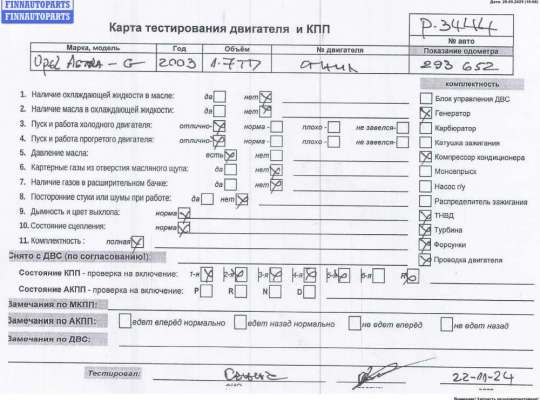 FINNAUTOPARTS
FINNAUTOPARTS
Карта тестирования двигателя и КПП
P-34444
№ авто
Марка, модель Год Объём № двигателя Показание одометра
Opel Astra - G 2003 1.7TD 293 652
комплектность
1. Наличие охлаждающей жидкости в масле: да нет
2. Наличие масла в охлаждающей жидкости: да нет
3. Пуск и работа холодного двигателя: отлично- норма - плохо - не завелся-
4. Пуск и работа прогретого двигателя: отлично- норма - плохо - не завелся-
5. Давление масла: есть нет
6. Картерные газы из отверстия масляного щупа: да нет
7. Наличие газов в расширительном бачке: да нет
8. Посторонние стуки или шумы при работе: да нет
9. Дымность и цвет выхлопа: норма
10. Состояние сцепления: норма
11. Комплектность : полная
Блок управления ДВС
Генератор
Карбюратор
Катушка зажигания
Компрессор кондиционера
Моновпрыск
Насос г/у
Распределитель зажигания
ТНВД
Турбина
Форсунки
Проводка двигателя
Снято с ДВС (по согласованию!):
Состояние КПП - проверка на включение: 1-я 2-я 3-я 4-я 5-я 6-я R
Состояние АКПП - проверка на включение: P R N D
Замечания по МКПП:
Замечания по АКПП: едет вперёд нормально едет назад нормально не едет вперёд не едет назад
Замечания по ДВС:
Тестировал: 22-11-24